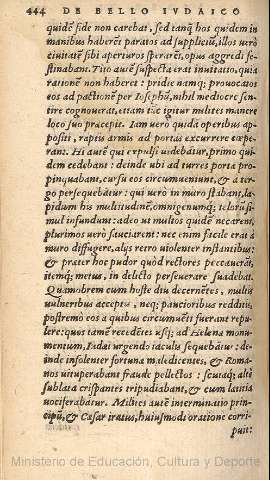 444 DE BELLO IVDAICO
quidē fide non carebat, sed tanq̃ hos quidem in
manibus haberēt paratos ad suppliciū, illos verò
civitatē sibi aperturos sperarēt, opus aggredi fe-
stinabant. Tito autē suspecta erat invitatio, quia
rationē non haberet: pridie namq; provocatos
eos ad pactionē per Iosephū, nihil mediocre sen-
tire cognoverat, etiam tūc igitur milites manere
loco suo præcepit. Iam verò quidā operibus ap-
positi, rapeis armis ad portas excurrere cæpe-
rant. Hi autē qui expulsi videbātur, primo qui-
dem cedebant: deinde ubi ad turres porta pro-
pinquabant, cursu eos circumveniunt, & à ter-
go persequebātur: qui verò in muro stabant, la-
pidum his multitudinē, omnigenumq; telorū si-
mul infundunt: adeo ut multos quidē necarent,
plurimos verò sauciarent: nec enim facile erat à
muro diffugere, aliis retro violenter instantibus:
& præter hoc pudor quòd rectores peccaverāt,
itemq; metus, in delicto perseverare suadebat.
Quamobrem cum hoste diu decernētes, multis
vulneribus acceptis, neq; paucioribus redditis,
postremo eos a quibus circumvēti fuerant repu-
lere: quos tamē recedētes usq; ad Helenæ monu-
mentum, Iudæi urgendo iaculis sequebātur: de-
inde insolenter fortunæ maledicentes, & Roma-
nos vituperabant fraude pellectos: scutaq; altè
sublata crispantes tripudiabant, & cum lætitia
vociferabātur. Milites autē interminatio prin-
cipū, & Cæsar iratus, huiusmodi oratione corri-
puit:
Ministerio de Educación, Cultura y Deporte